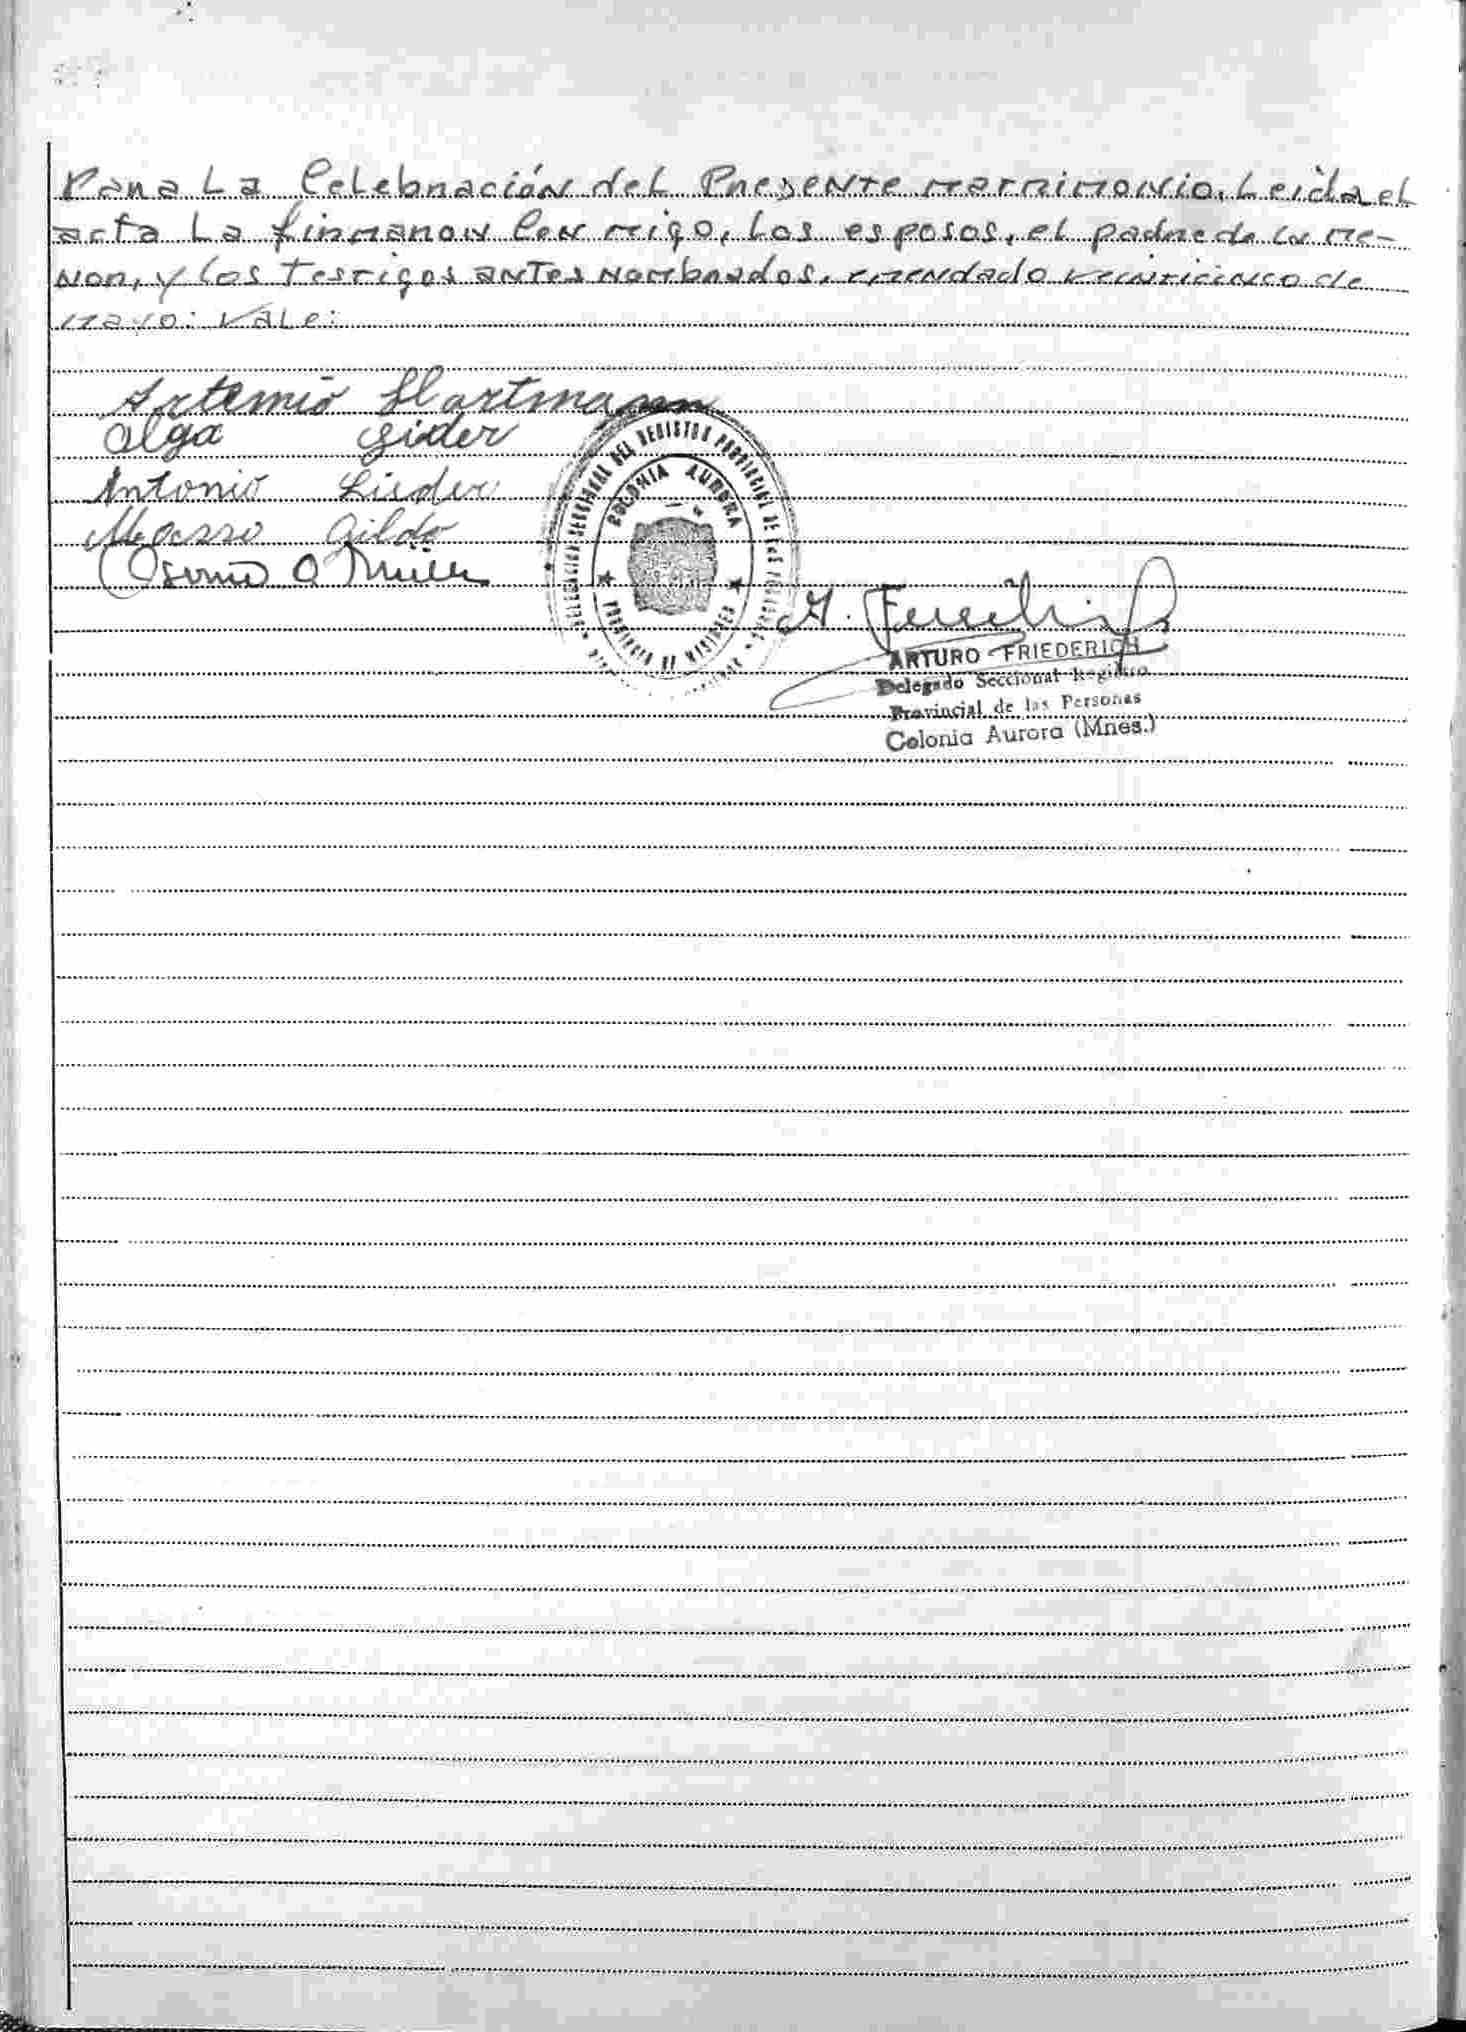 Para La Celebración del Presente matrimonio. Leida el
acta La firmaron Con migo, Los esposos, el padre de la me-
nor, y Los Testigos antes nombrados. emendado veinticinco de
mayo: Vale:
Artemio Hartmann
Olga Lider
Antonio Lieder
Gildo
DELEGACION SECCIONAL DEL REGISTRO PROVINCIAL DE LAS PERSONAS
COLONIA AURORA
PROVINCIA DE MISIONES
ARTURO FRIEDERICH
Delegado Seccional Registro
Provincial de las Personas
Colonia Aurora (Mnes.)